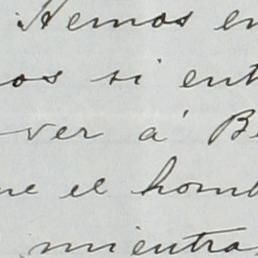 Hemos en
os si ent
ver á Be
ne el homb
mientra